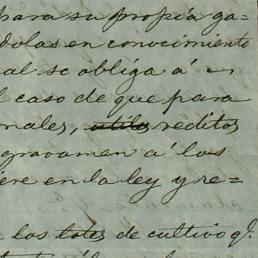 para su propia ga=
dolas en conocimiento
al se obliga á
l caso de que para
nales, utiles reditos
gravamen a los
ere en la ley y re=
los lotes de cultivo q.